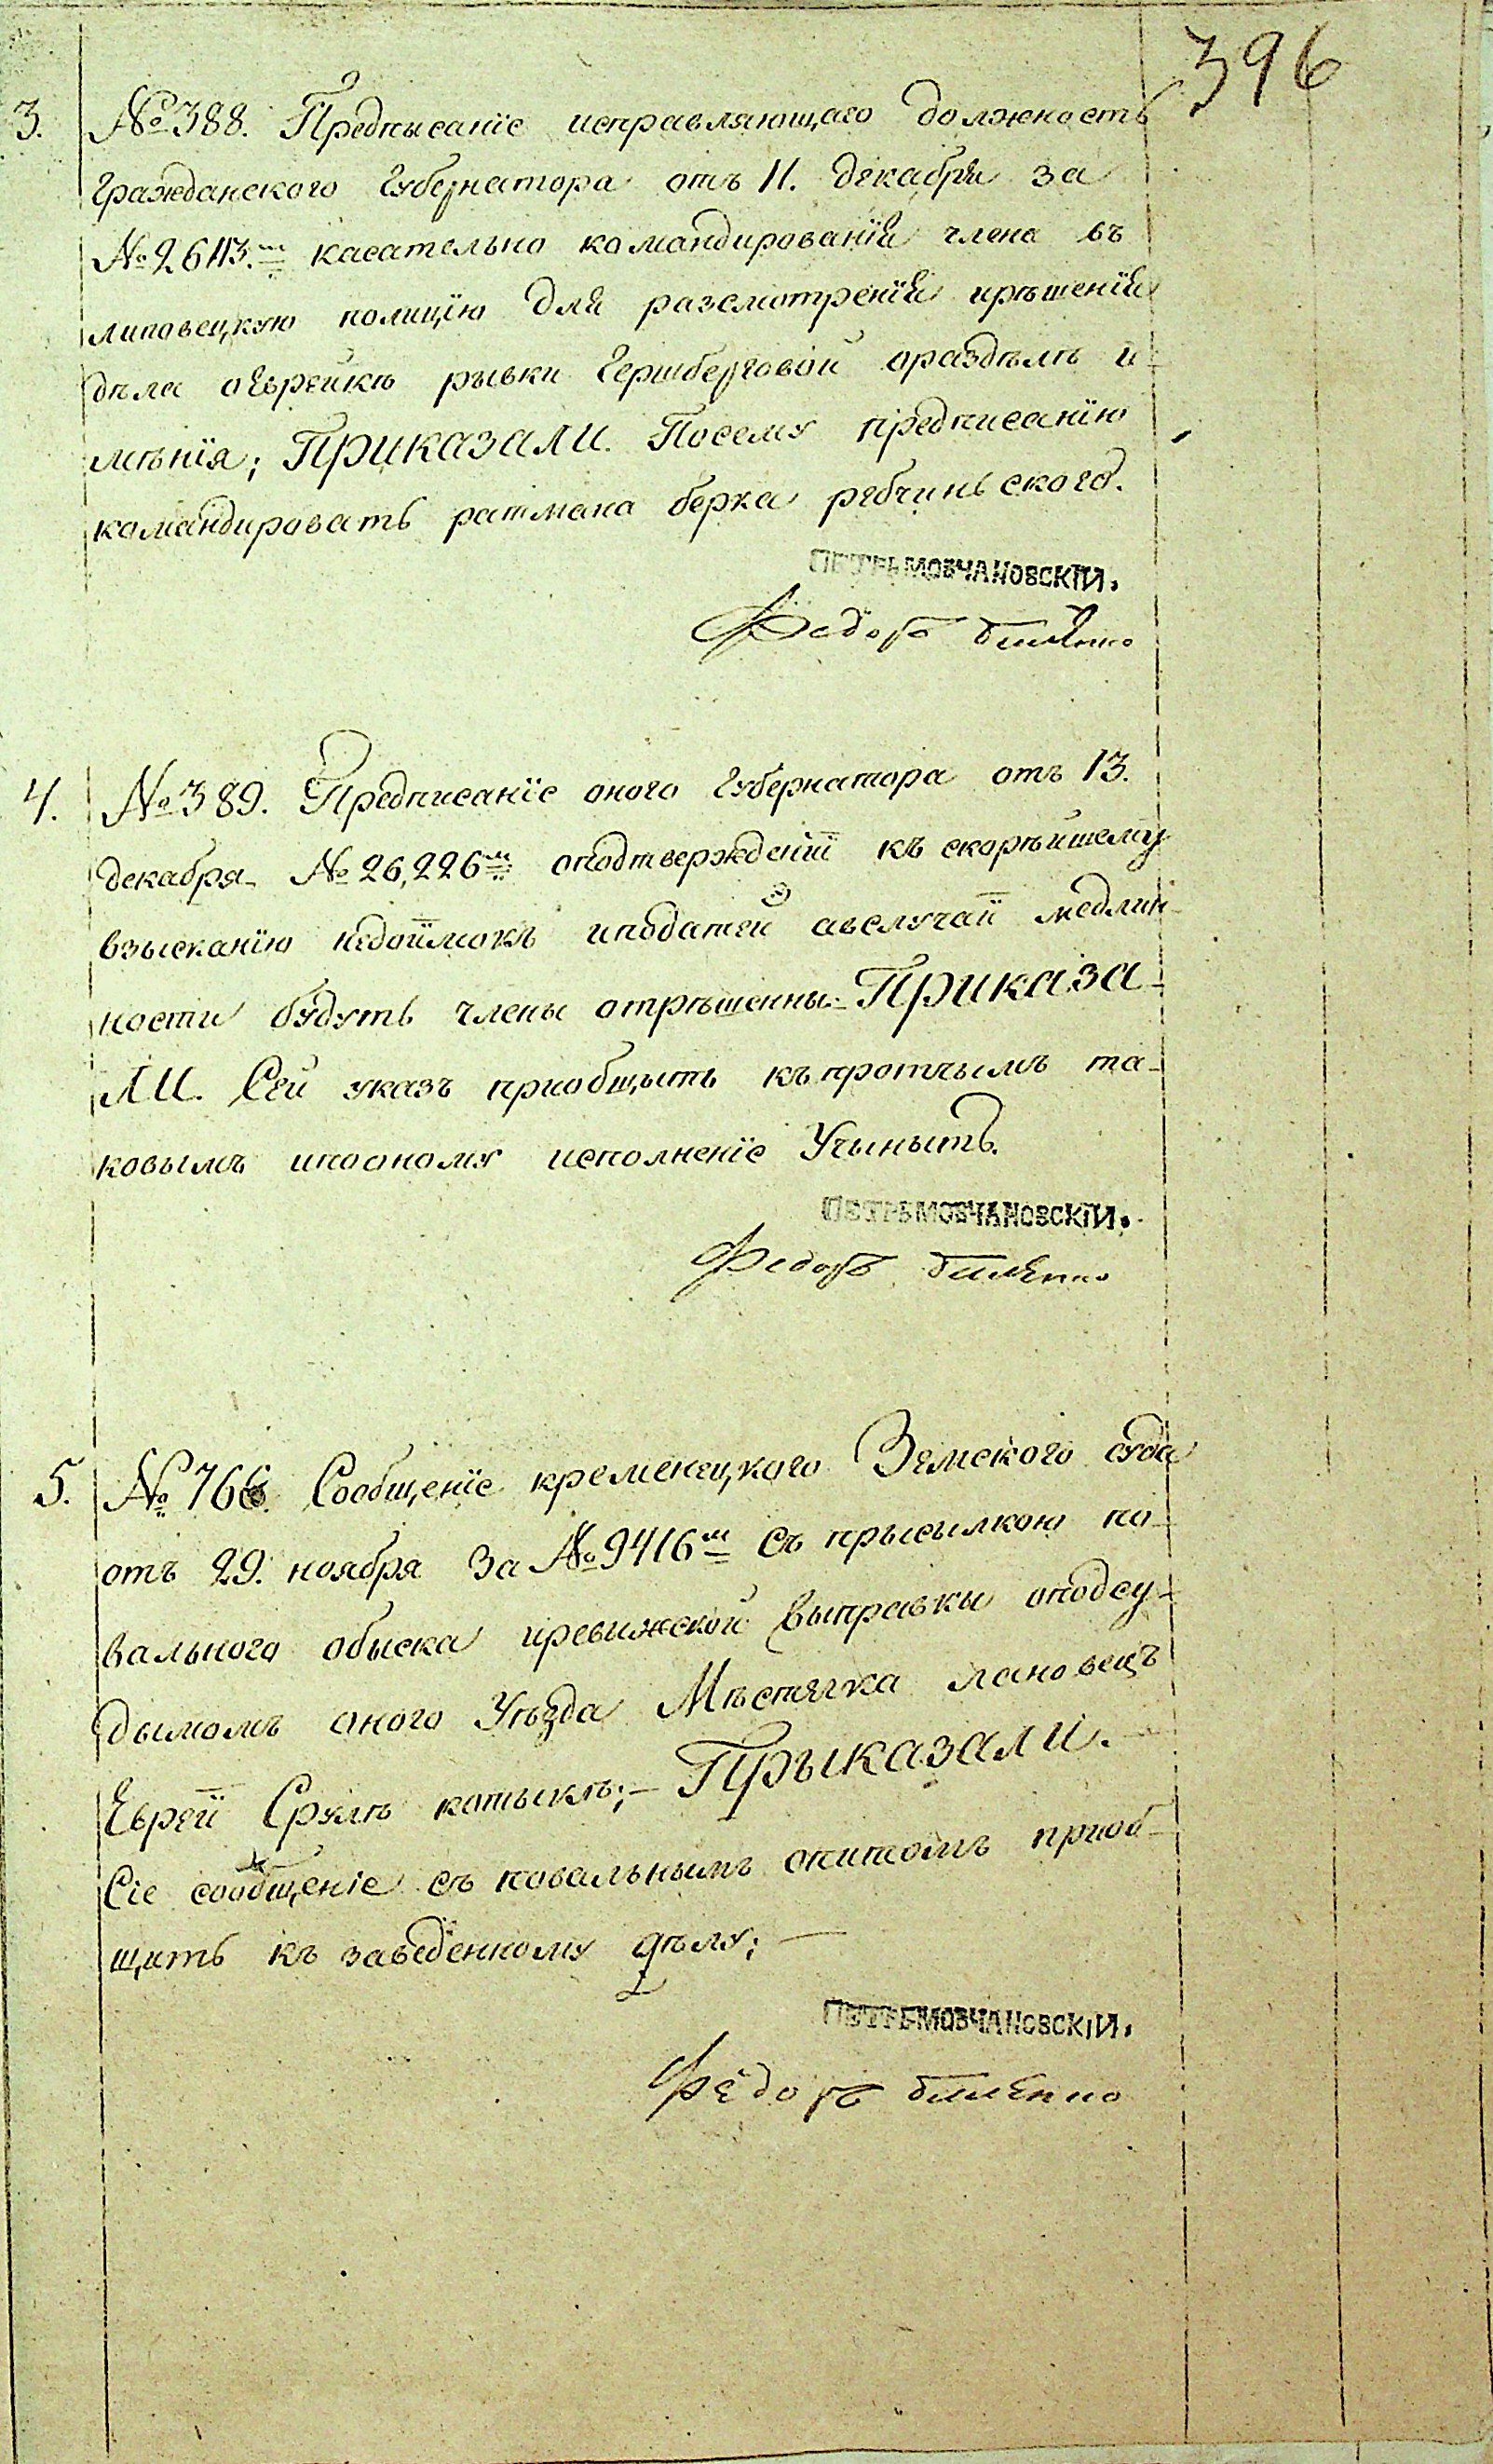 396
3. № 388. Предписанїе исправляющаго должность
гражданского губернатора отъ 11. декабря за
№ 26113.ᵐ касательно командированїя члена въ
липовецкую полицїю для разсмотренїя ирѣшенїя
дѣла оеврейкѣ рывки Гершберговой ораздѣлѣ и-
мѣнїя; Приказали. Посему предписанїю
командировать ратмана берка рабчиньского.
ПЕТРЬ МОВЧАНОВСКІЙ.
Федоръ
4. № 389. Предписанїе оного губернатора отъ 13.
декабря № 26,226ᵐ оподтвержденїї къ скорѣйшему
взысканїю недоїмокъ иподатей авслучаї медлин-
ности будуть члены отрѣшенны. Приказа-
ли. Сей указъ приобщыть къ протчымъ та-
ковымъ ипооному исполненїе Учыныть.
ПЕТРЬ МОВЧАНОВСКІЙ.
Федоръ
5. № 766. Сообщенїе кременецкого Земского суда
отъ 29. ноября за № 9416ᵐ съ прысылкою по-
вального обыска иревижской выправки оподсу-
дымомъ оного Уѣзда Мѣстячка лановецъ
Еврей Срулѣ котыкѣ; Прыказали.
Сіе сообщеніе съ повальнымъ опитомъ приоб-
щить къ заведенному дѣлу;
ПЕТРЬ МОВЧАНОВСКІЙ.
Федоръ